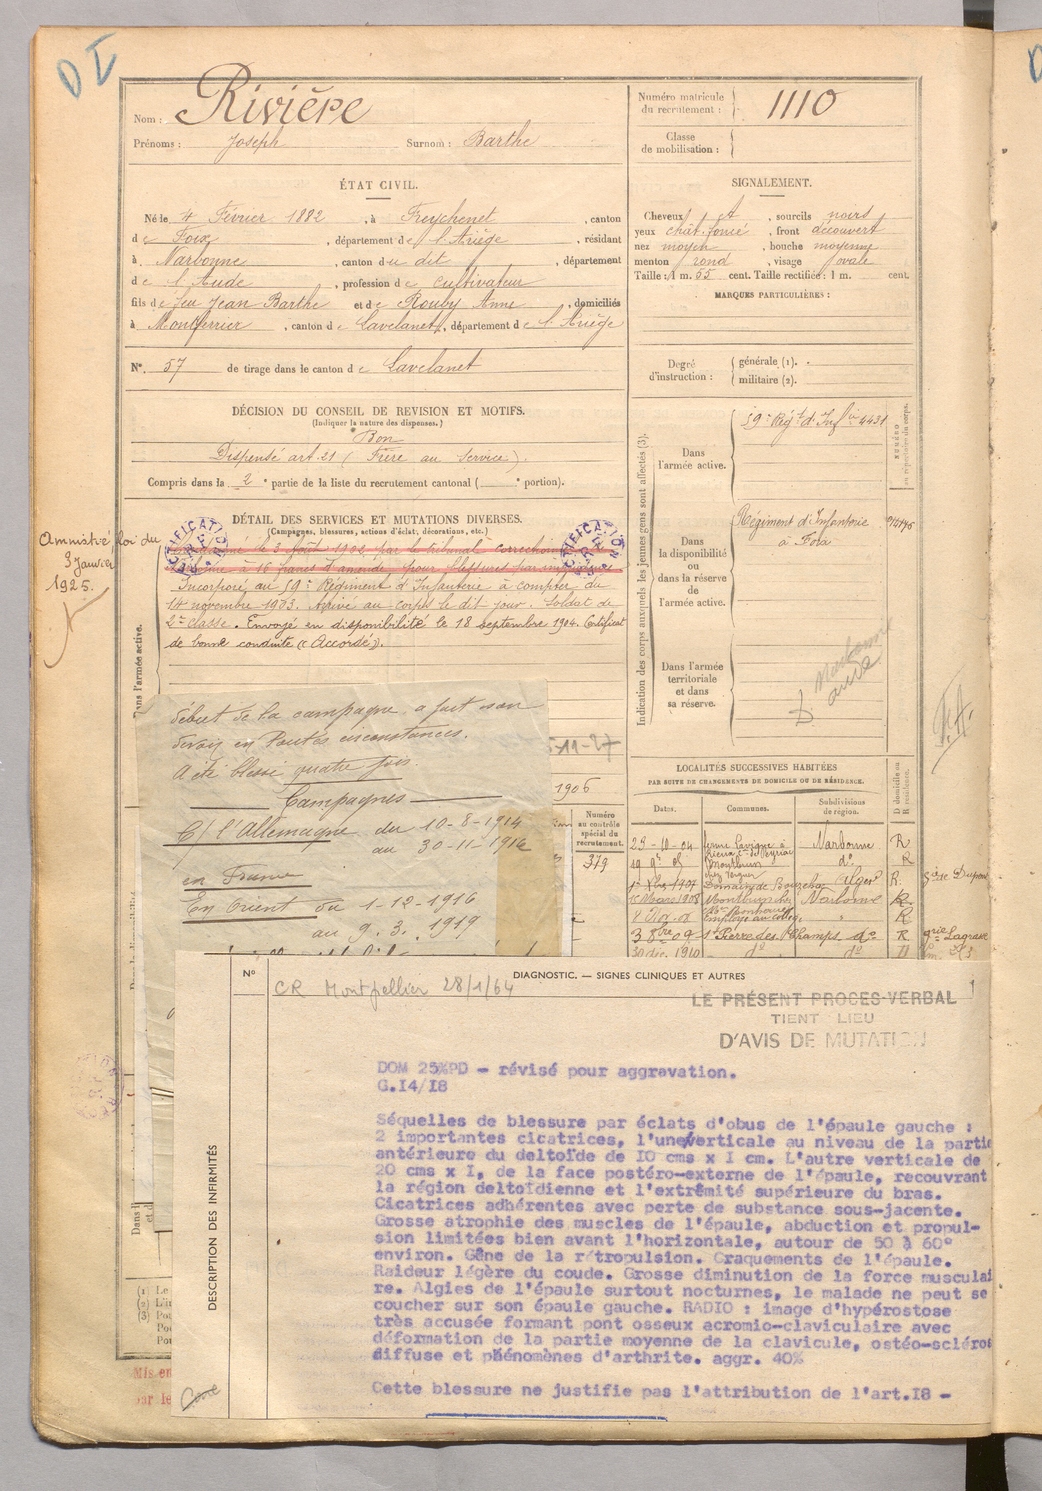 D I
Nom : Rivière
Prénoms : Joseph Surnom : Barthe
Numéro matricule du recrutement : 1110
Classe de mobilisation :
ÉTAT CIVIL.
Né le 4 Février 1882, à Freychenet, canton
de Foix, département de l'Ariège, résidant
à Narbonne, canton du dit, département
de l'Aude, profession de cultivateur
fils de feu Jean Barthe et de Rouby Anne, domiciliés
à Montferrier, canton de Lavelanet, département de l'Ariège
N°. 57 de tirage dans le canton de Lavelanet
SIGNALEMENT.
Cheveux , sourcils noirs
yeux chât. foncé, front découvert
nez moyen, bouche moyenne
menton rond, visage ovale
Taille : 1 m. 65 cent. Taille rectifiée : 1 m. cent.
MARQUES PARTICULIÈRES :
Degré d'instruction : générale (1). -
militaire (2).
DÉCISION DU CONSEIL DE REVISION ET MOTIFS.
(Indiquer la nature des dispenses.)
Bon
Dispensé art. 21 (Frère au Service).
Compris dans la 2e partie de la liste du recrutement cantonal ( e portion).
DÉTAIL DES SERVICES ET MUTATIONS DIVERSES.
(Campagnes, blessures, actions d'éclat, décorations, etc.)
Amnistié loi du
3 Janvier
1925.
le 3 Août 1902 par le tribunal correctionnel
à 16 francs d'amende pour blessures par
Incorporé au 59e Régiment d'Infanterie à compter du
14 novembre 1903. Arrivé au corps le dit jour. Soldat de
2e classe. Envoyé en disponibilité le 18 septembre 1904. Certificat
de bonne conduite « Accordé ».
Dans l'armée active.
Indication des corps auxquels les jeunes gens sont affectés (3).
Dans l'armée active. 59e Régt d'Infie 4431
NUMÉRO au répertoire du corps.
Dans la disponibilité ou dans la réserve de l'armée active. Régiment d'Infanterie
à Foix
Dans l'armée territoriale et dans sa réserve.
Narbonne
aude
LOCALITÉS SUCCESSIVES HABITÉES
PAR SUITE DE CHANGEMENTS DE DOMICILE OU DE RÉSIDENCE.
Dates. Communes. Subdivisions de région. D domicile ou R résidence.
23-10-04 Narbonne R
do R
1907 Alger R.
Mars 1908 Narbonne R
" R
3 8bre 09 St Pierre des Champs do R grie Lagrasse
30 déc. 1910 do do
Numéro au contrôle spécial du recrutement.
379
1906
début de la campagne a fait son
devoir en toutes circonstances.
A été blessé quatre fois.
Campagnes
C/ l'Allemagne du 10-8-1914
au 30-11-1916
en France
En Orient du 1-12-1916
au 9.3.1919
N°
DIAGNOSTIC. — SIGNES CLINIQUES ET AUTRES
CR Montpellier 28/1/64
LE PRÉSENT PROCES-VERBAL
TIENT LIEU
D'AVIS DE MUTATION
DESCRIPTION DES INFIRMITÉS
DOM 25%PD - révisé pour aggravation.
G.I4/I8
Séquelles de blessure par éclats d'obus de l'épaule gauche :
2 importantes cicatrices, l'une verticale au niveau de la partie
antérieure du deltoïde de IO cms x I cm. L'autre verticale de
20 cms x I, de la face postéro-externe de l'épaule, recouvrant
la région deltoïdienne et l'extrêmité supérieure du bras.
Cicatrices adhérentes avec perte de substance sous-jacente.
Grosse atrophie des muscles de l'épaule, abduction et propul-
sion limitées bien avant l'horizontale, autour de 50 à 60°
environ. Gêne de la rétropulsion. Craquements de l'épaule.
Raideur légère du coude. Grosse diminution de la force musculai
re. Algies de l'épaule surtout nocturnes, le malade ne peut se
coucher sur son épaule gauche. RADIO : image d'hypérostose
très accusée formant pont osseux acromio-claviculaire avec
déformation de la partie moyenne de la clavicule, ostéo-scléros
diffuse et phénomènes d'arthrite. aggr. 40%
Cette blessure ne justifie pas l'attribution de l'art.I8 -
Mis en
par le